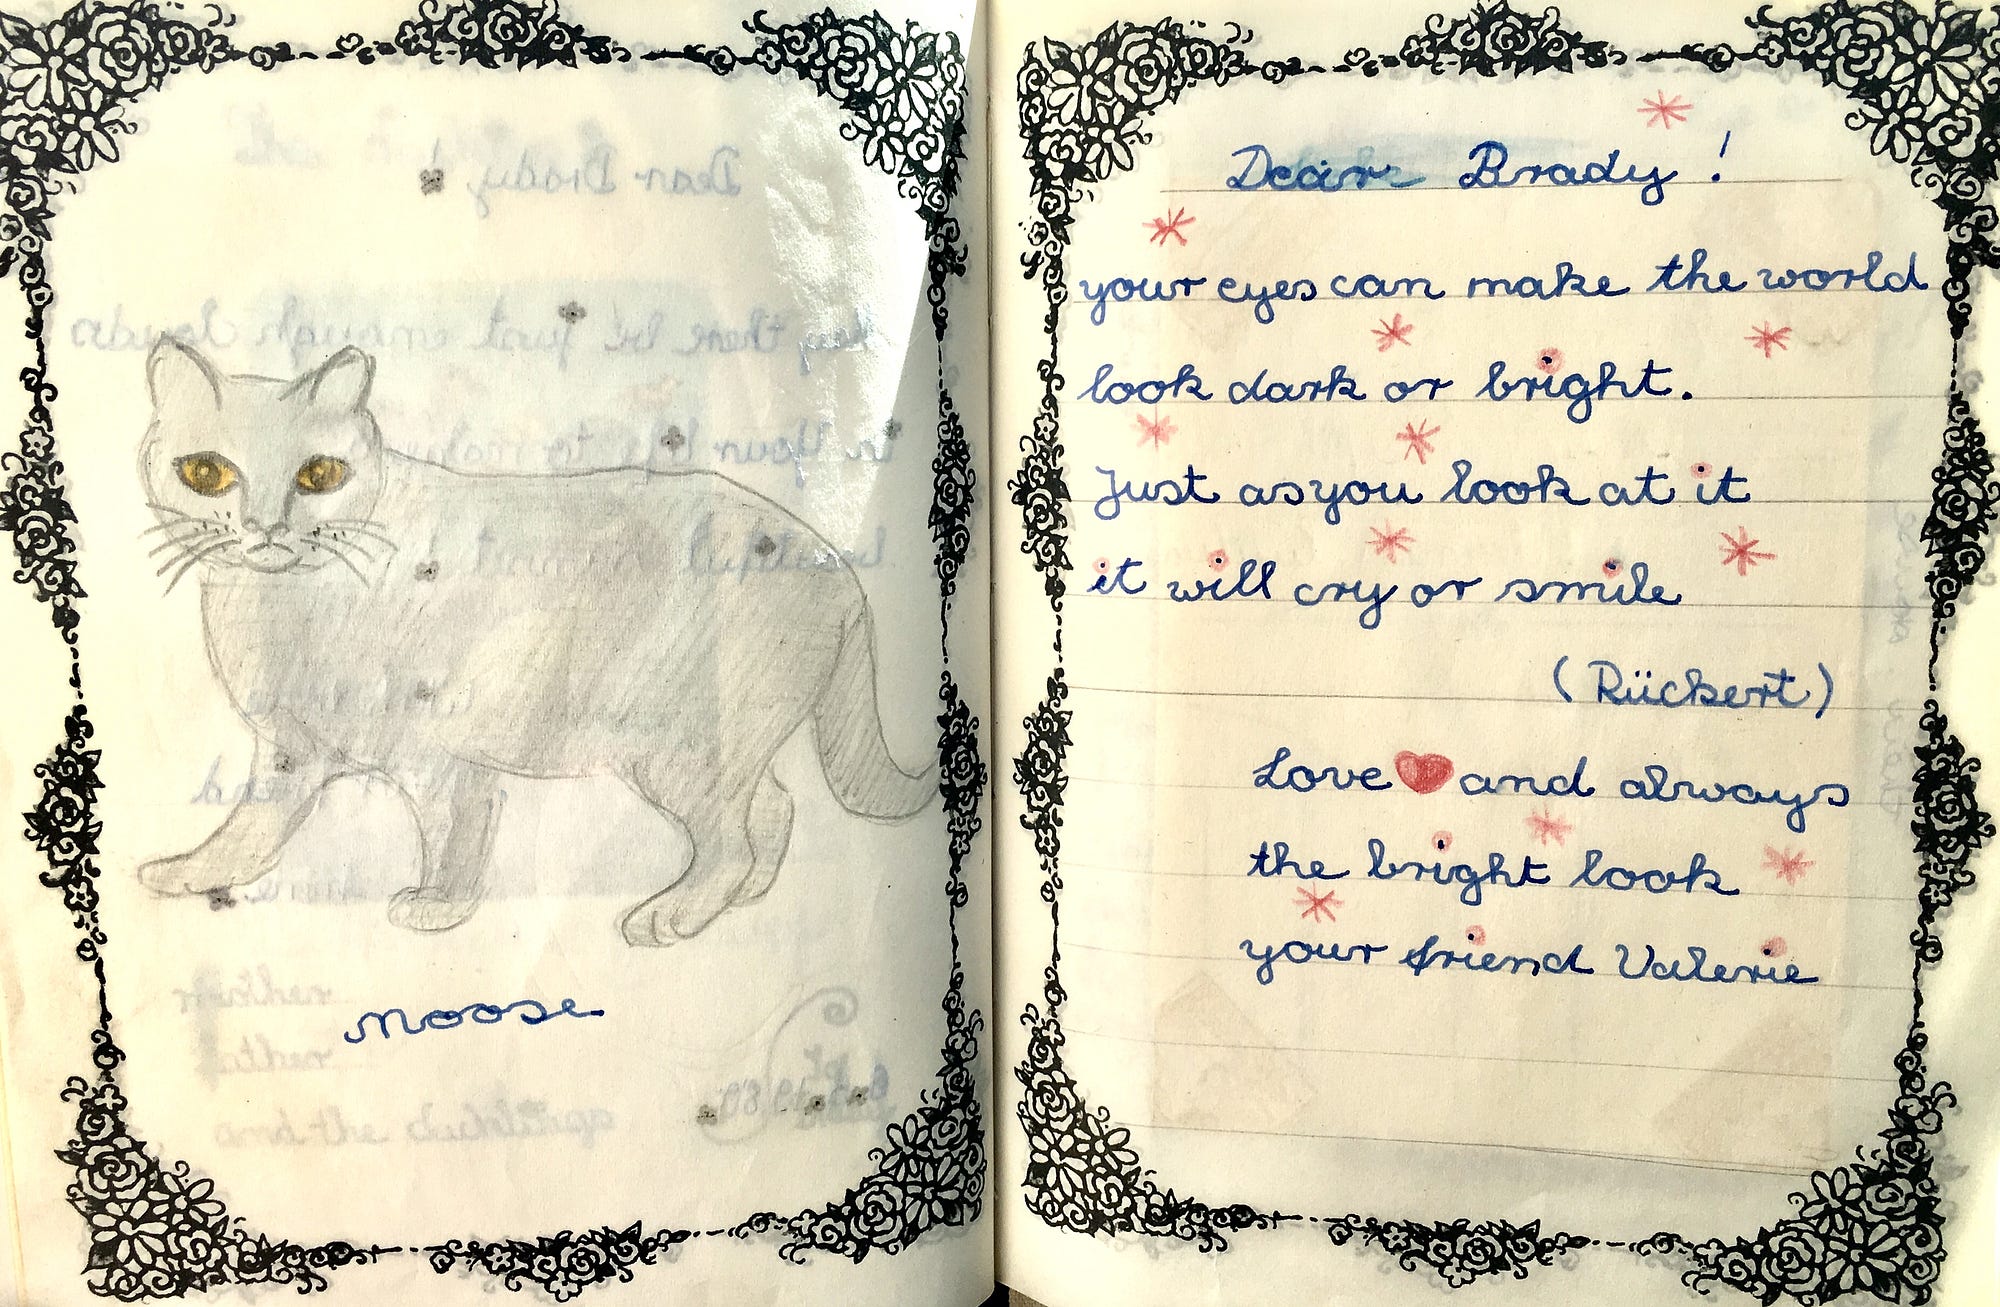 Moose
Dear Brady!
your eyes can make the world
look dark or bright.
Just as you look at it
it will cry or smile
(Rückert)
Love and always
the bright look
your friend Valerie